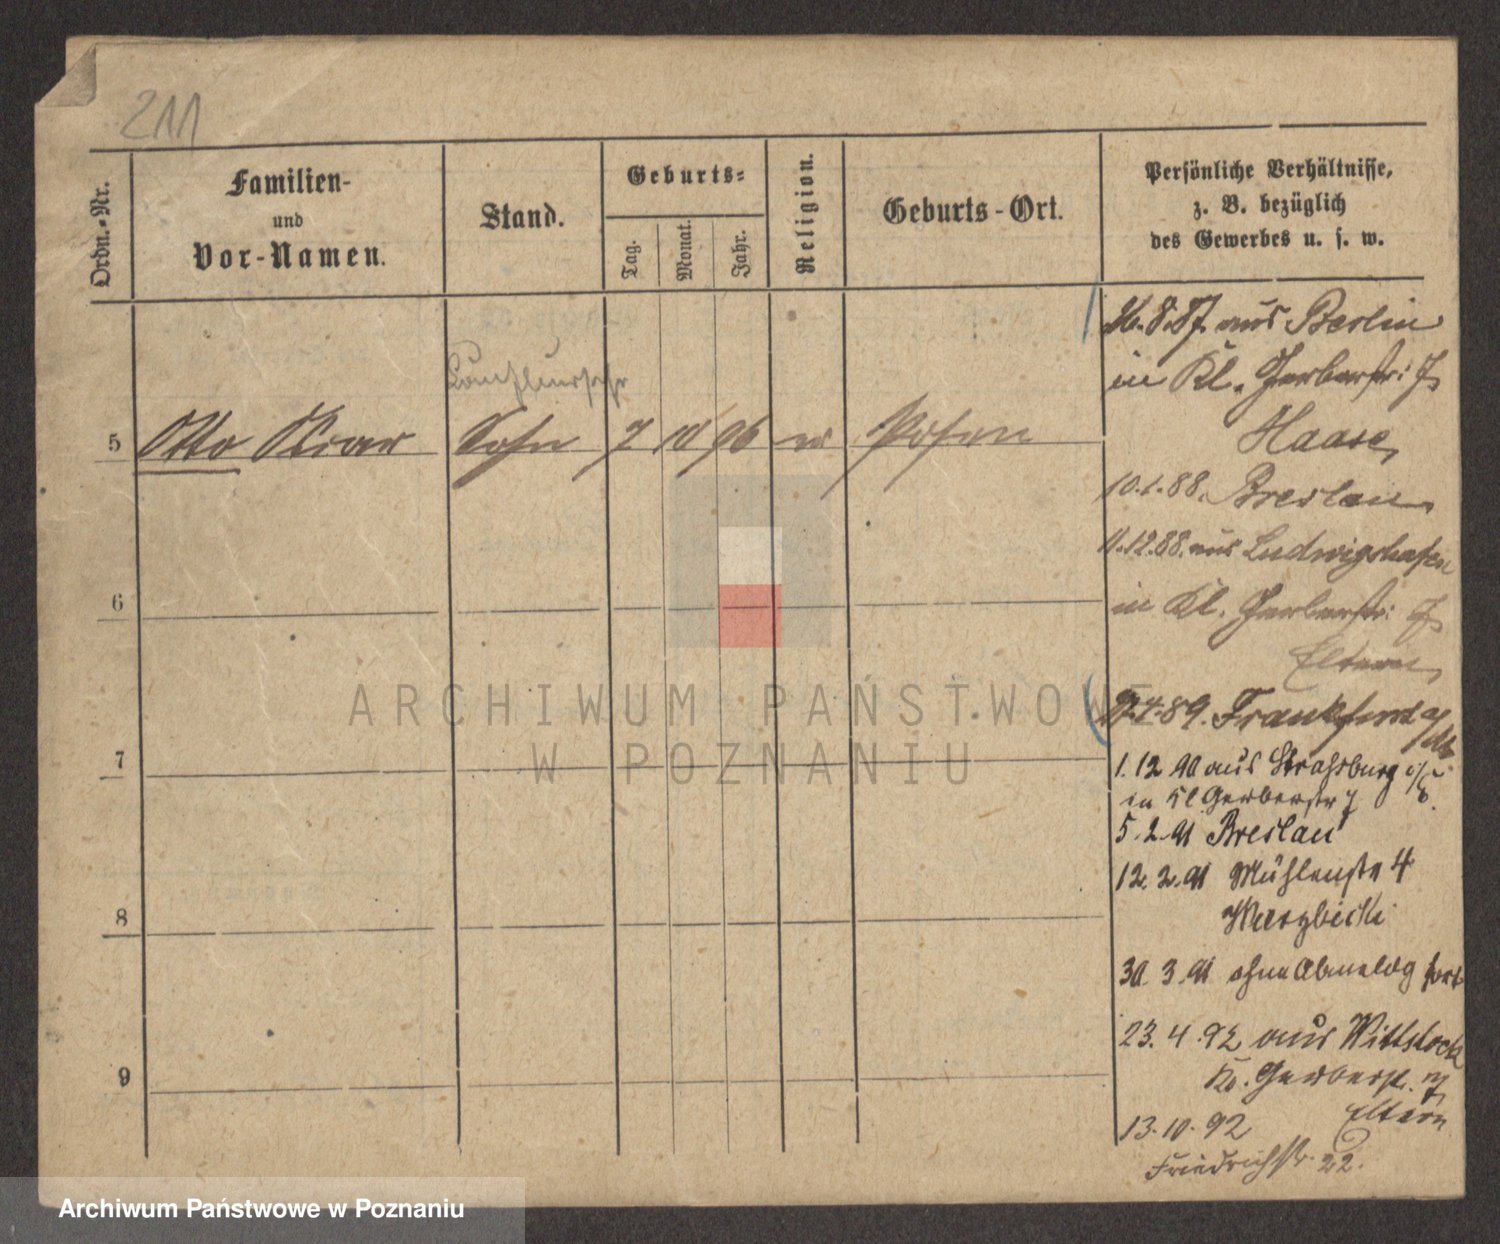 211
Ordn.-Nr.
Familien-
und
Vor-Namen.
Stand.
Geburts-
Tag.
Monat.
Jahr.
Religion.
Geburts-Ort.
Persönliche Verhältnisse,
z. B. bezüglich
des Gewerbes u. s. w.
5 Otto Sohn 7 10 96 Posen
6
7
8
9
26.8.87. aus Berlin
in Kl. Gerberstr: 7
Haase,
10.1.88. Breslau
11.12.88. aus Ludwigshafen
in Kl. Gerberstr: 7
Eltern,
4.89. Frankfurt a/M.
1.12.90 aus Straßburg i/E.
in Kl Gerberstr 7
5.2.91 Breslau
12.2.91 Mühlenstr 4
30.3.91 ohne Abmeldg fort
23.4.92 aus Wittstock
Kl. Gerberstr. 7
Eltern
13.10.92
Friedrichstr. 22.
ARCHIWUM PAŃSTWOWE
W POZNANIU
Archiwum Państwowe w Poznaniu